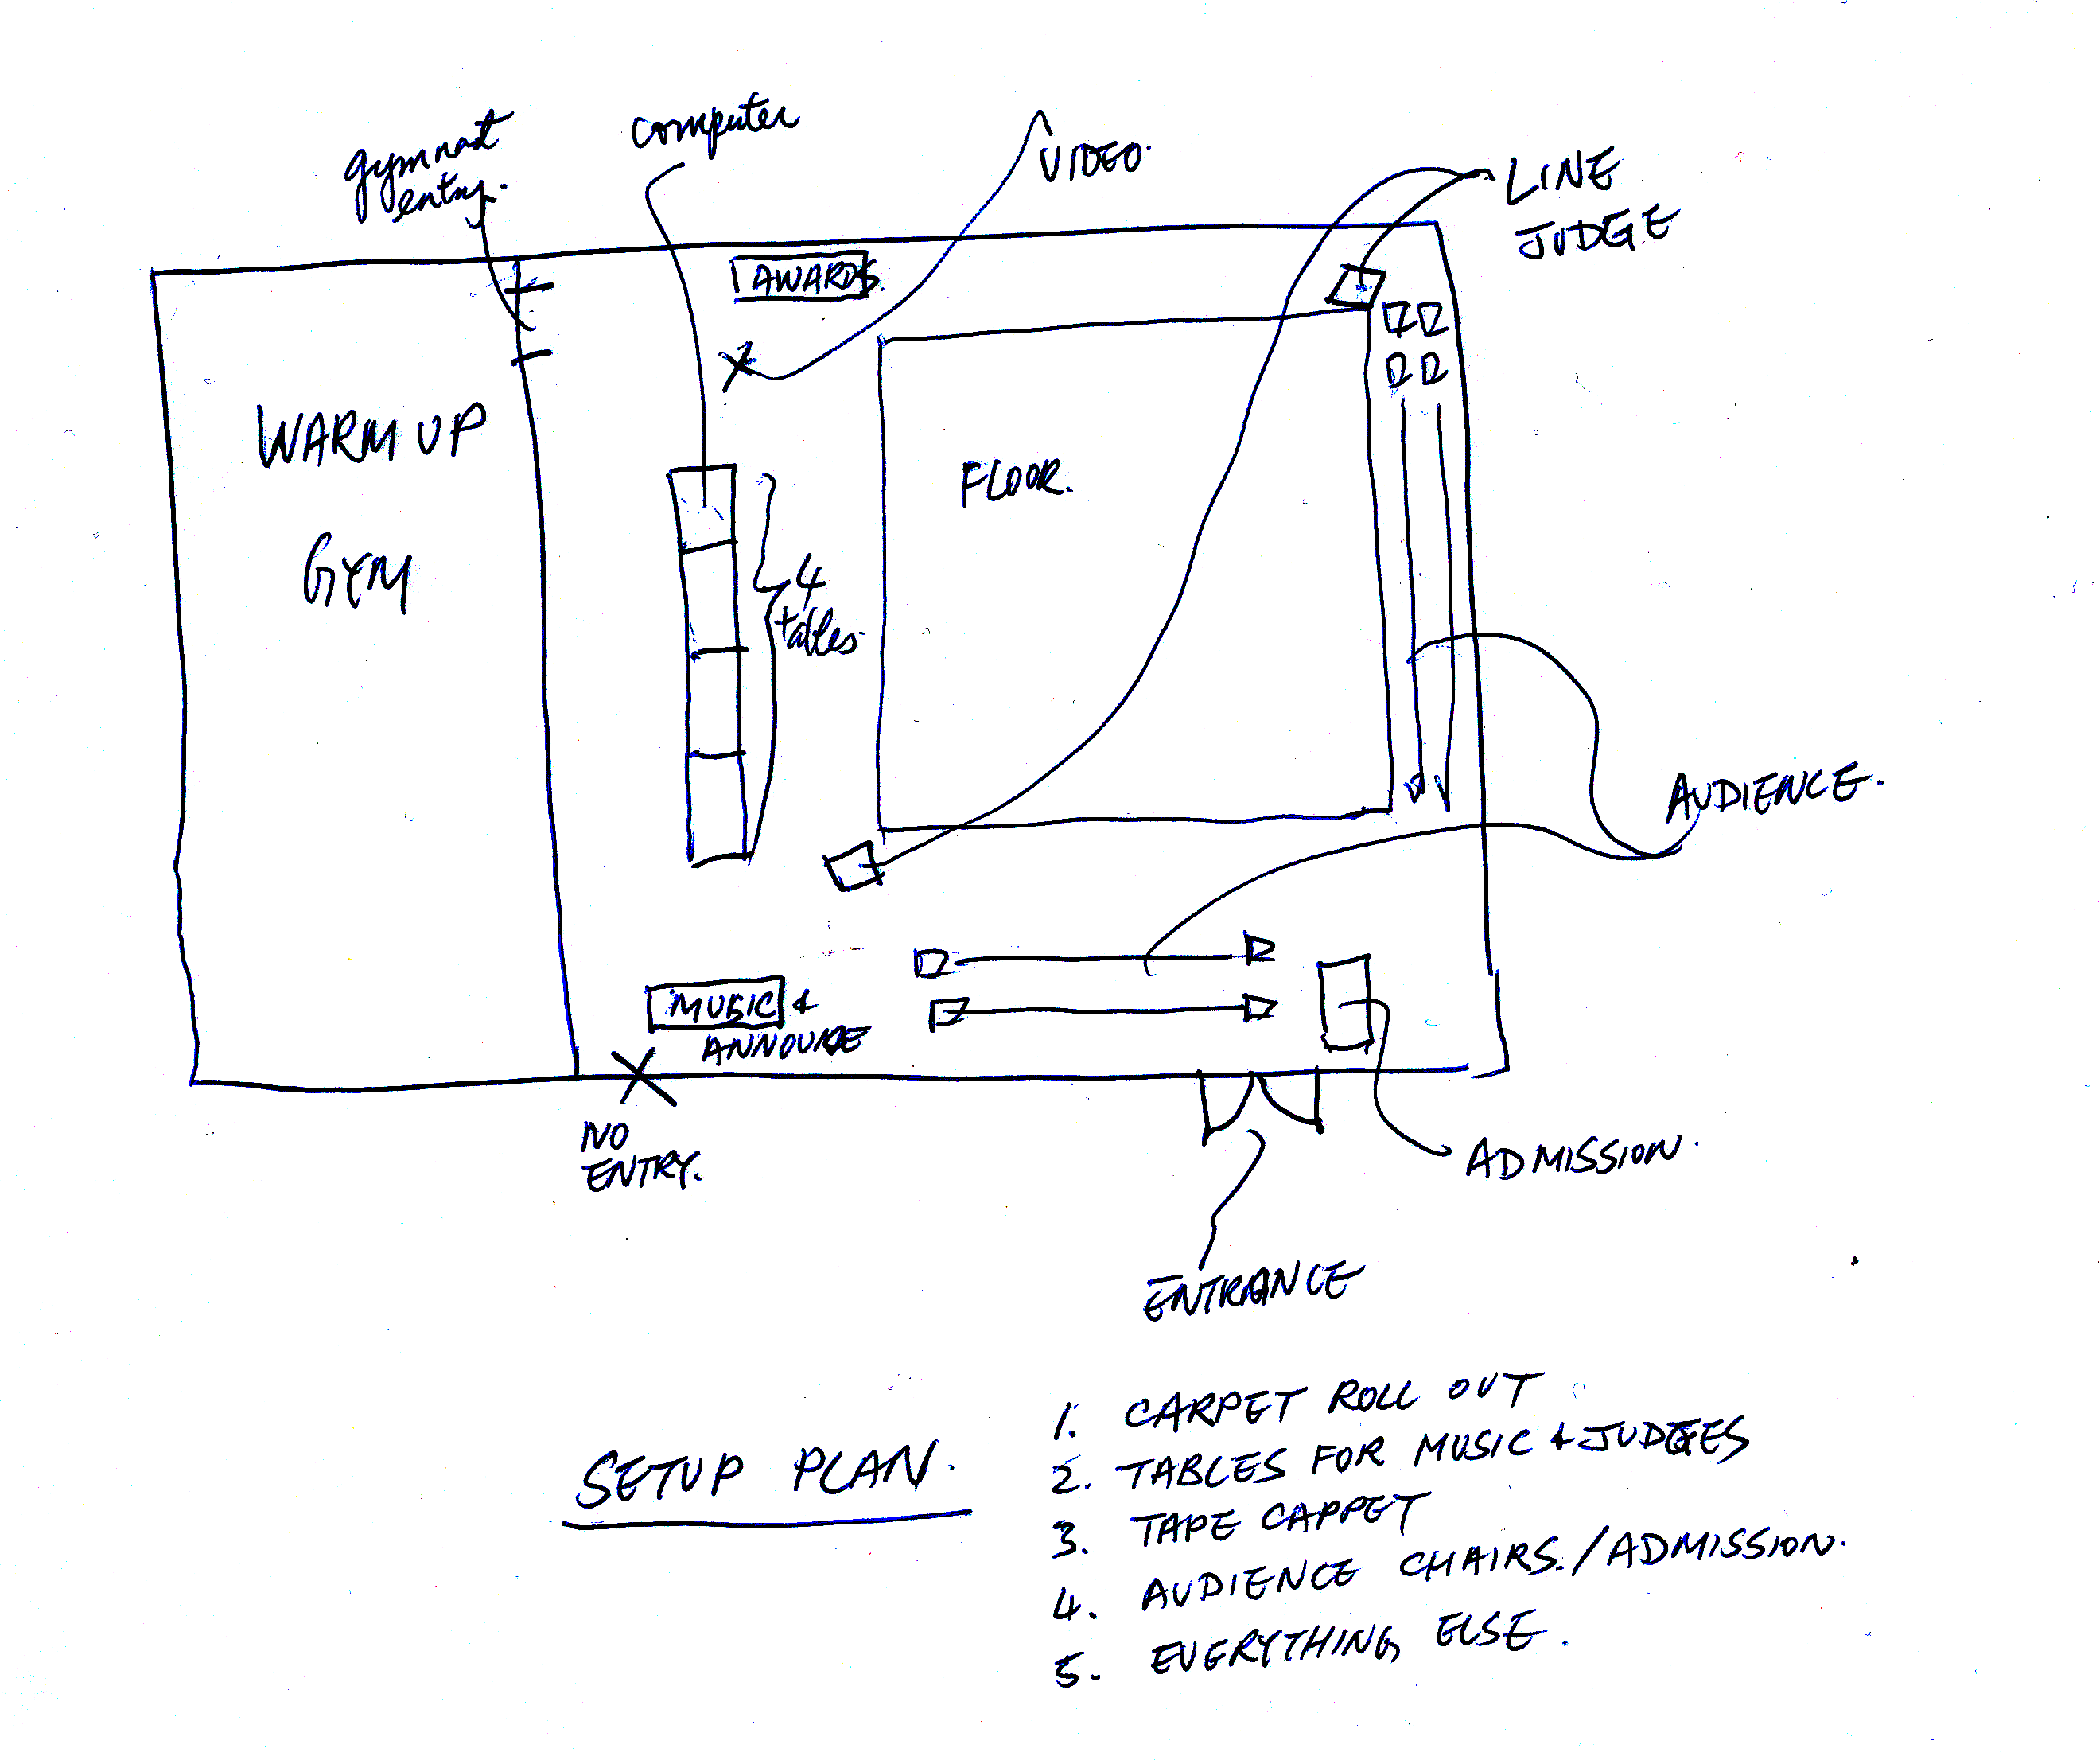 gymnast
entry.
computer
VIDEO.
LINE
JUDGE
AWARDS.
WARM UP
GYM
FLOOR.
4
tables.
AUDIENCE.
MUSIC &
ANNOUNCE
NO
ENTRY.
ADMISSION.
ENTRANCE
SETUP PLAN.
1. CARPET ROLL OUT
2. TABLES FOR MUSIC & JUDGES
3. TAPE CARPET
4. AUDIENCE CHAIRS./ADMISSION.
5. EVERYTHING ELSE.